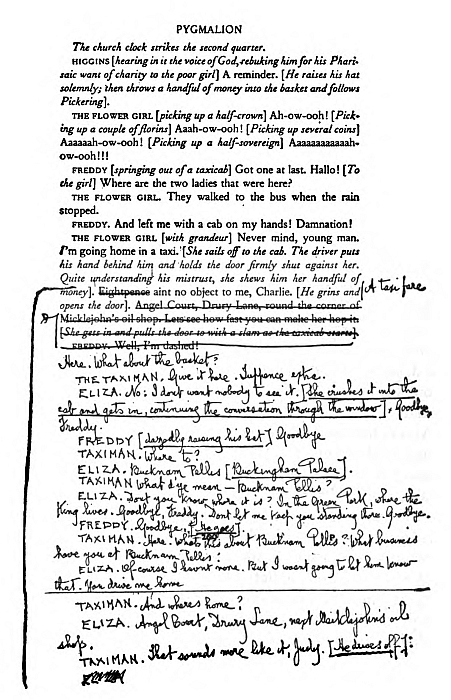 PYGMALION
The church clock strikes the second quarter.
HIGGINS [hearing in it the voice of God, rebuking him for his Phari-
saic want of charity to the poor girl] A reminder. [He raises his hat
solemnly; then throws a handful of money into the basket and follows
Pickering].
THE FLOWER GIRL [picking up a half-crown] Ah-ow-ooh! [Pick-
ing up a couple of florins] Aaah-ow-ooh! [Picking up several coins]
Aaaaaah-ow-ooh! [Picking up a half-sovereign] Aaaaaaaaaaaah-
ow-ooh!!!
FREDDY [springing out of a taxicab] Got one at last. Hallo! [To
the girl] Where are the two ladies that were here?
THE FLOWER GIRL. They walked to the bus when the rain
stopped.
FREDDY. And left me with a cab on my hands! Damnation!
THE FLOWER GIRL [with grandeur] Never mind, young man.
I'm going home in a taxi. [She sails off to the cab. The driver puts
his hand behind him and holds the door firmly shut against her.
Quite understanding his mistrust, she shews him her handful of
money]. Eightpence aint no object to me, Charlie. [He grins and
A taxi fare
opens the door]. Angel Court, Drury Lane, round the corner of
Micklejohn's oil shop. Lets see how fast you can make her hop it.
[She gets in and pulls the door to with a slam as the taxicab starts].
FREDDY. Well, I'm dashed!
Here. What about the basket?
THE TAXIMAN. Give it here. Tuppence extra.
ELIZA. No: I dont want nobody to see it. [She crushes it into the
cab and gets in, continuing the conversation through the window]. Goodbye,
Freddy.
FREDDY [dazedly raising his hat] Goodbye
TAXIMAN. Where to?
ELIZA. Bucknam Pellis [Buckingham Palace].
TAXIMAN What d'ye mean — Bucknam Pellis?
ELIZA. Dont you know where it is? In the Green Park, where the
King lives. Goodbye, Freddy. Dont let me keep you standing there. Goodbye.
FREDDY. Goodbye. [He goes].
TAXIMAN. Here: Whats this about Bucknam Pellis? What business
have you at Bucknam Pellis?
ELIZA. Of course I havnt none. But I wasnt going to let him know
that. You drive me home
TAXIMAN. And wheres home?
ELIZA. Angel Court, Drury Lane, next Meiklejohn's oil
shop.
TAXIMAN. That sounds more like it, Judy. [He drives off].